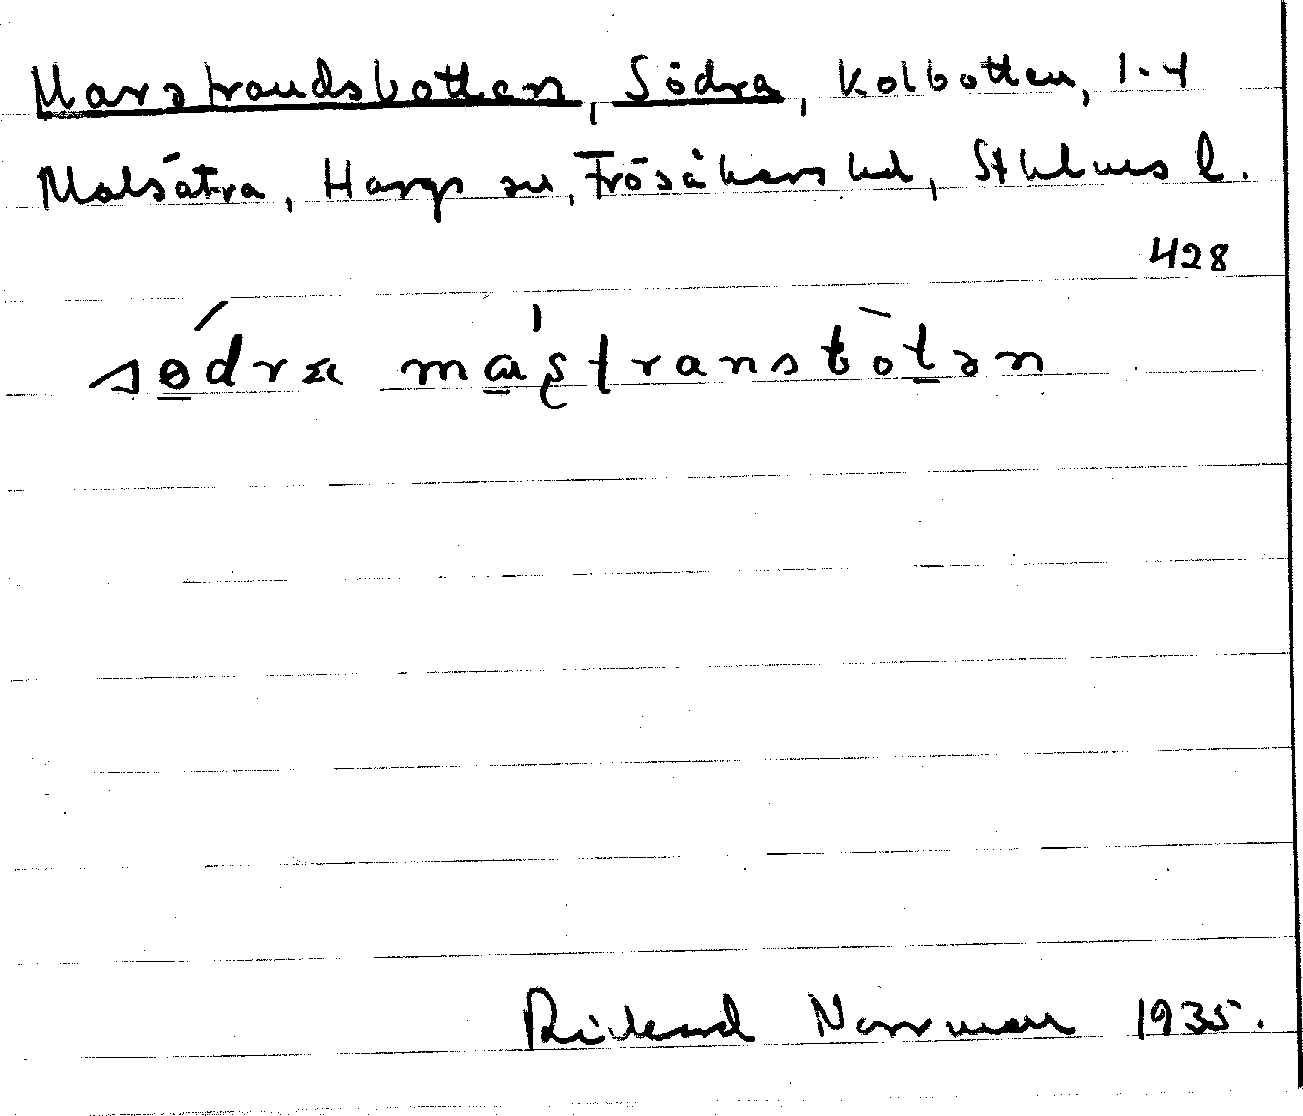 Marstrandsbotten, Södra, Kolbotten, 1-4
Malsätra, Hargs sn, Frösåkers hd, Sthlms l.
428
södra maʂtransbotən
Rickard Norrman 1935.